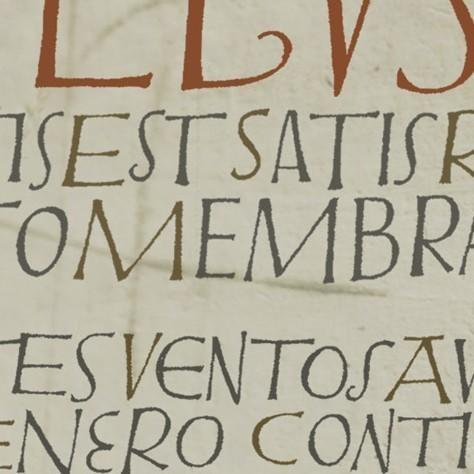 ELVS
TIS EST SATIS R
TO MEMBRA
TES VENTOS AV
ENERO CONTI